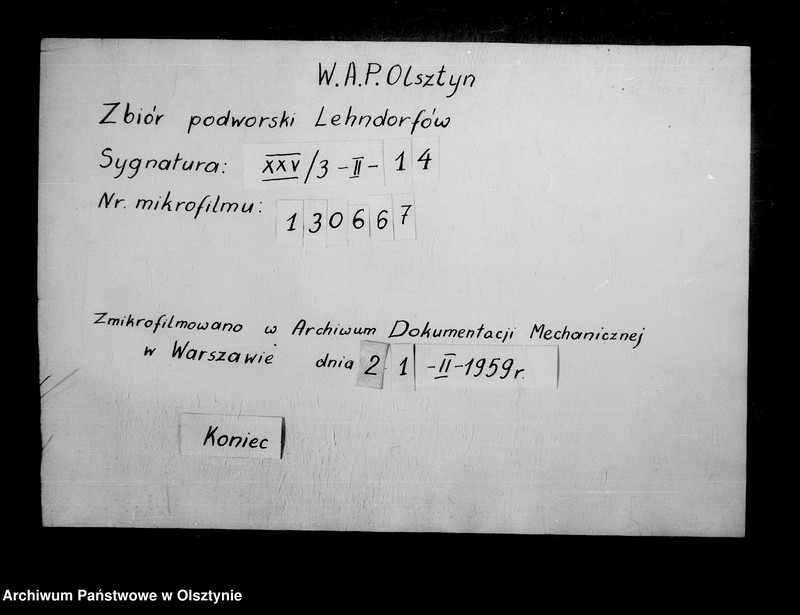 W.A.P. Olsztyn
Zbiór podworski Lehndorfów
Sygnatura: XXV/3 -II- 14
Nr. mikrofilmu: 130667
Zmikrofilmowano w Archiwum Dokumentacji Mechanicznej
w Warszawie dnia 21 -II-1959r.
Koniec
Archiwum Państwowe w Olsztynie